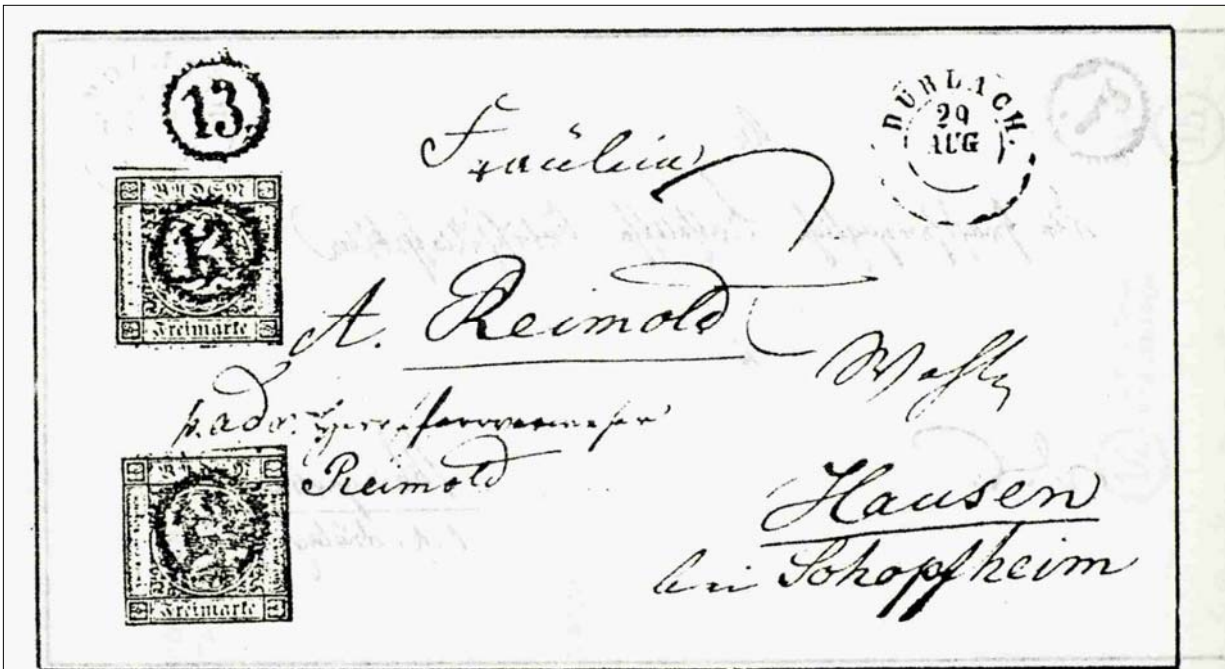 13
DURLACH.
29
AUG
Fräulein
BADEN
Freimarke
A. Reimold
Wohlg
p. adr. Herrn Pfarrverweser
Reimold
BADEN
Freimarke
Hausen
bei Schopfheim